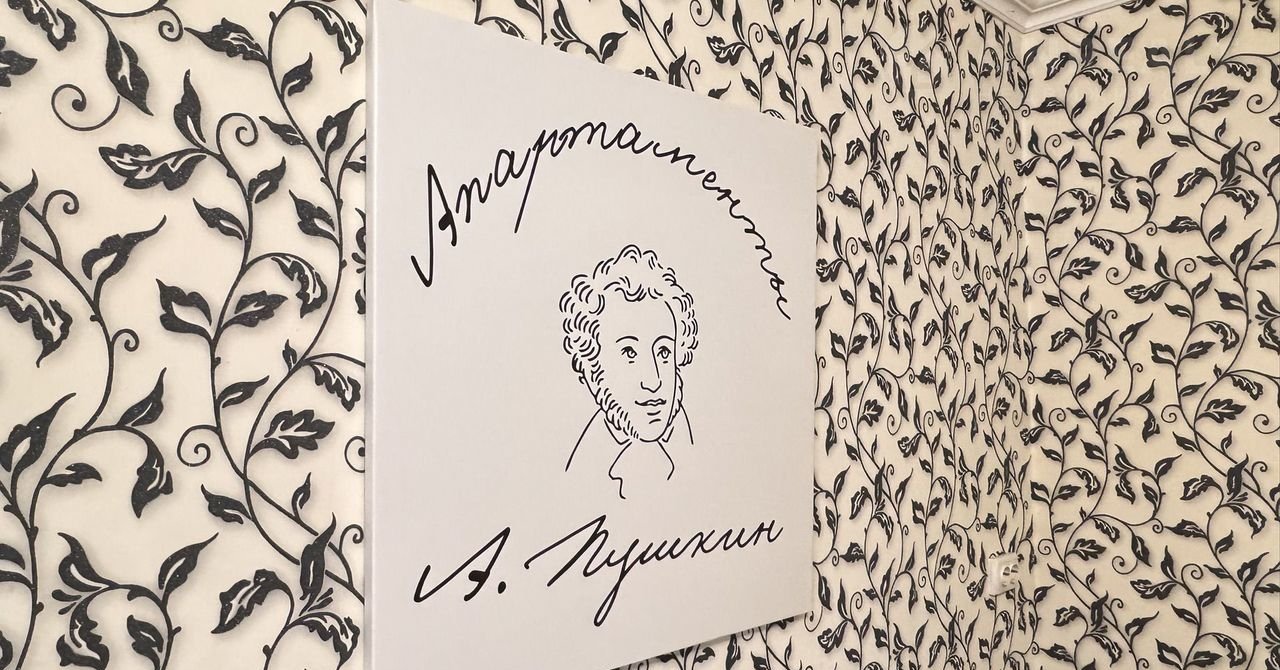 Апартаменты
А. Пушкин